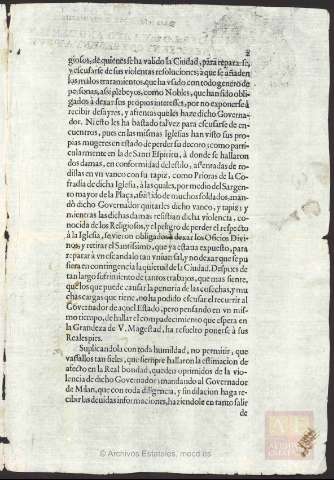 2
giosos, de quienes se ha valido la Ciudad, para repararse,
y escusarse de sus violentas resoluciones; a que se añaden
los malos tratamientos, que ha vsado con todo genero de
personas, assi plebeyos, como Nobles, que han sido obli-
gados à dexar sus propios interesses, por no exponerse à
recibir desayres, y afrentas que les haze dicho Governa-
dor. Ni esto les ha bastado talvez para escusarse de en-
cuentros, pues en las mismas Iglesias han visto sus pro-
pias mugeres en estado de perder su decoro; como parti-
cularmente en la de Santi Espiritu, à donde se hallaron
dos damas, en conformidad del estilo, assentadas de ro-
dillas en vn vanco con su tapiz, como Prioras de la Co-
fradia de dicha Iglesia, à las quales, por medio del Sargen-
to mayor de la Plaça, assistido de muchos soldados, man-
dò dicho Governador quitarles dicho vanco, y tapiz; y
mientras las dichas damas resistian dicha violencia, co-
nocida de los Religiosos, y el peligro de perder el respecto
à la Iglesia, se vieron obligados à dexar los Oficios Divi-
nos, y retirar el Santissimo, que ya estava expuesto, para
reparar à vn escandalo tan vniversal, y no dexar que se pu-
siera en contingencia la quietud de la Ciudad. Despues de
tan largo sufrimiento de tantos trabajos, que mas siente,
que los que puede causar la penuria de las cosechas, y mu-
chas cargas que tiene, no ha podido escusar el recurrir al
Governador de aquel Estado, pero pensando en vn mis-
mo tiempo, de hallar el compadecimiento que espera en
la Grandeza de V. Magestad, ha resuelto ponerse à sus
Reales pies.
Suplicandola con toda humildad, no permitir, que
vassallos tan fieles, que siempre hallaron la estimacion de
afecto en la Real bondad, queden oprimidos de la vio-
lencia de dicho Governador; mandando al Governador
de Milan, que con toda diligencia, y sin dilacion haga re-
cibir las devidas informaciones, haziendole en tanto salir
de
ARCHIVOS ESTATALES
© Archivos Estatales, mecd.es